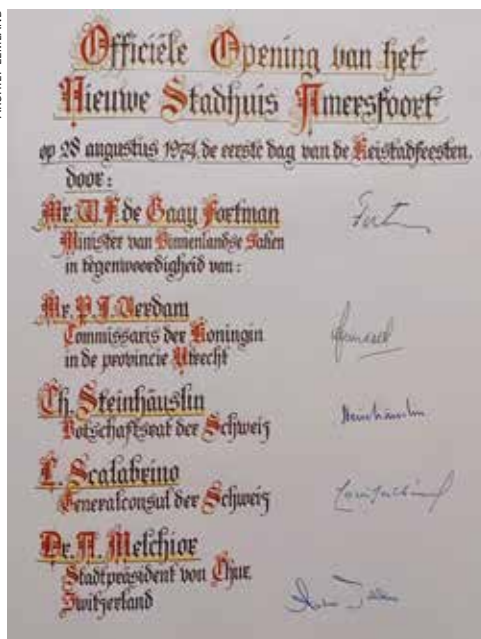 Officiële Opening van het
Nieuwe Stadhuis Amersfoort
op 28 augustus 1974, de eerste dag van de Keistadfeesten,
door:
Mr. W. F. de Gaay Fortman
Minister van Binnenlandse Zaken
in tegenwoordigheid van:
Mr. P. J. Verdam
Commissaris der Koningin
in de provincie Utrecht
Th. Steinhäuslin
Botschaftsrat der Schweiz
L. Scalabrino
Generalconsul der Schweiz
Dr. A. Melchior
Stadtpräsident von Chur
Switzerland